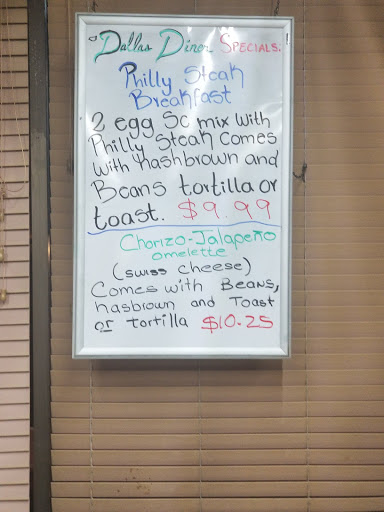 Dallas Diner SPECIALS:
Philly Steak
Breakfast
2 egg Sc mix with
Philly Steak Comes
with hashbrown and
Beans tortilla or
toast. $9.99
Chorizo-Jalapeño
omelette
(swiss cheese)
Comes with Beans,
hasbrown and Toast
or tortilla $10.25